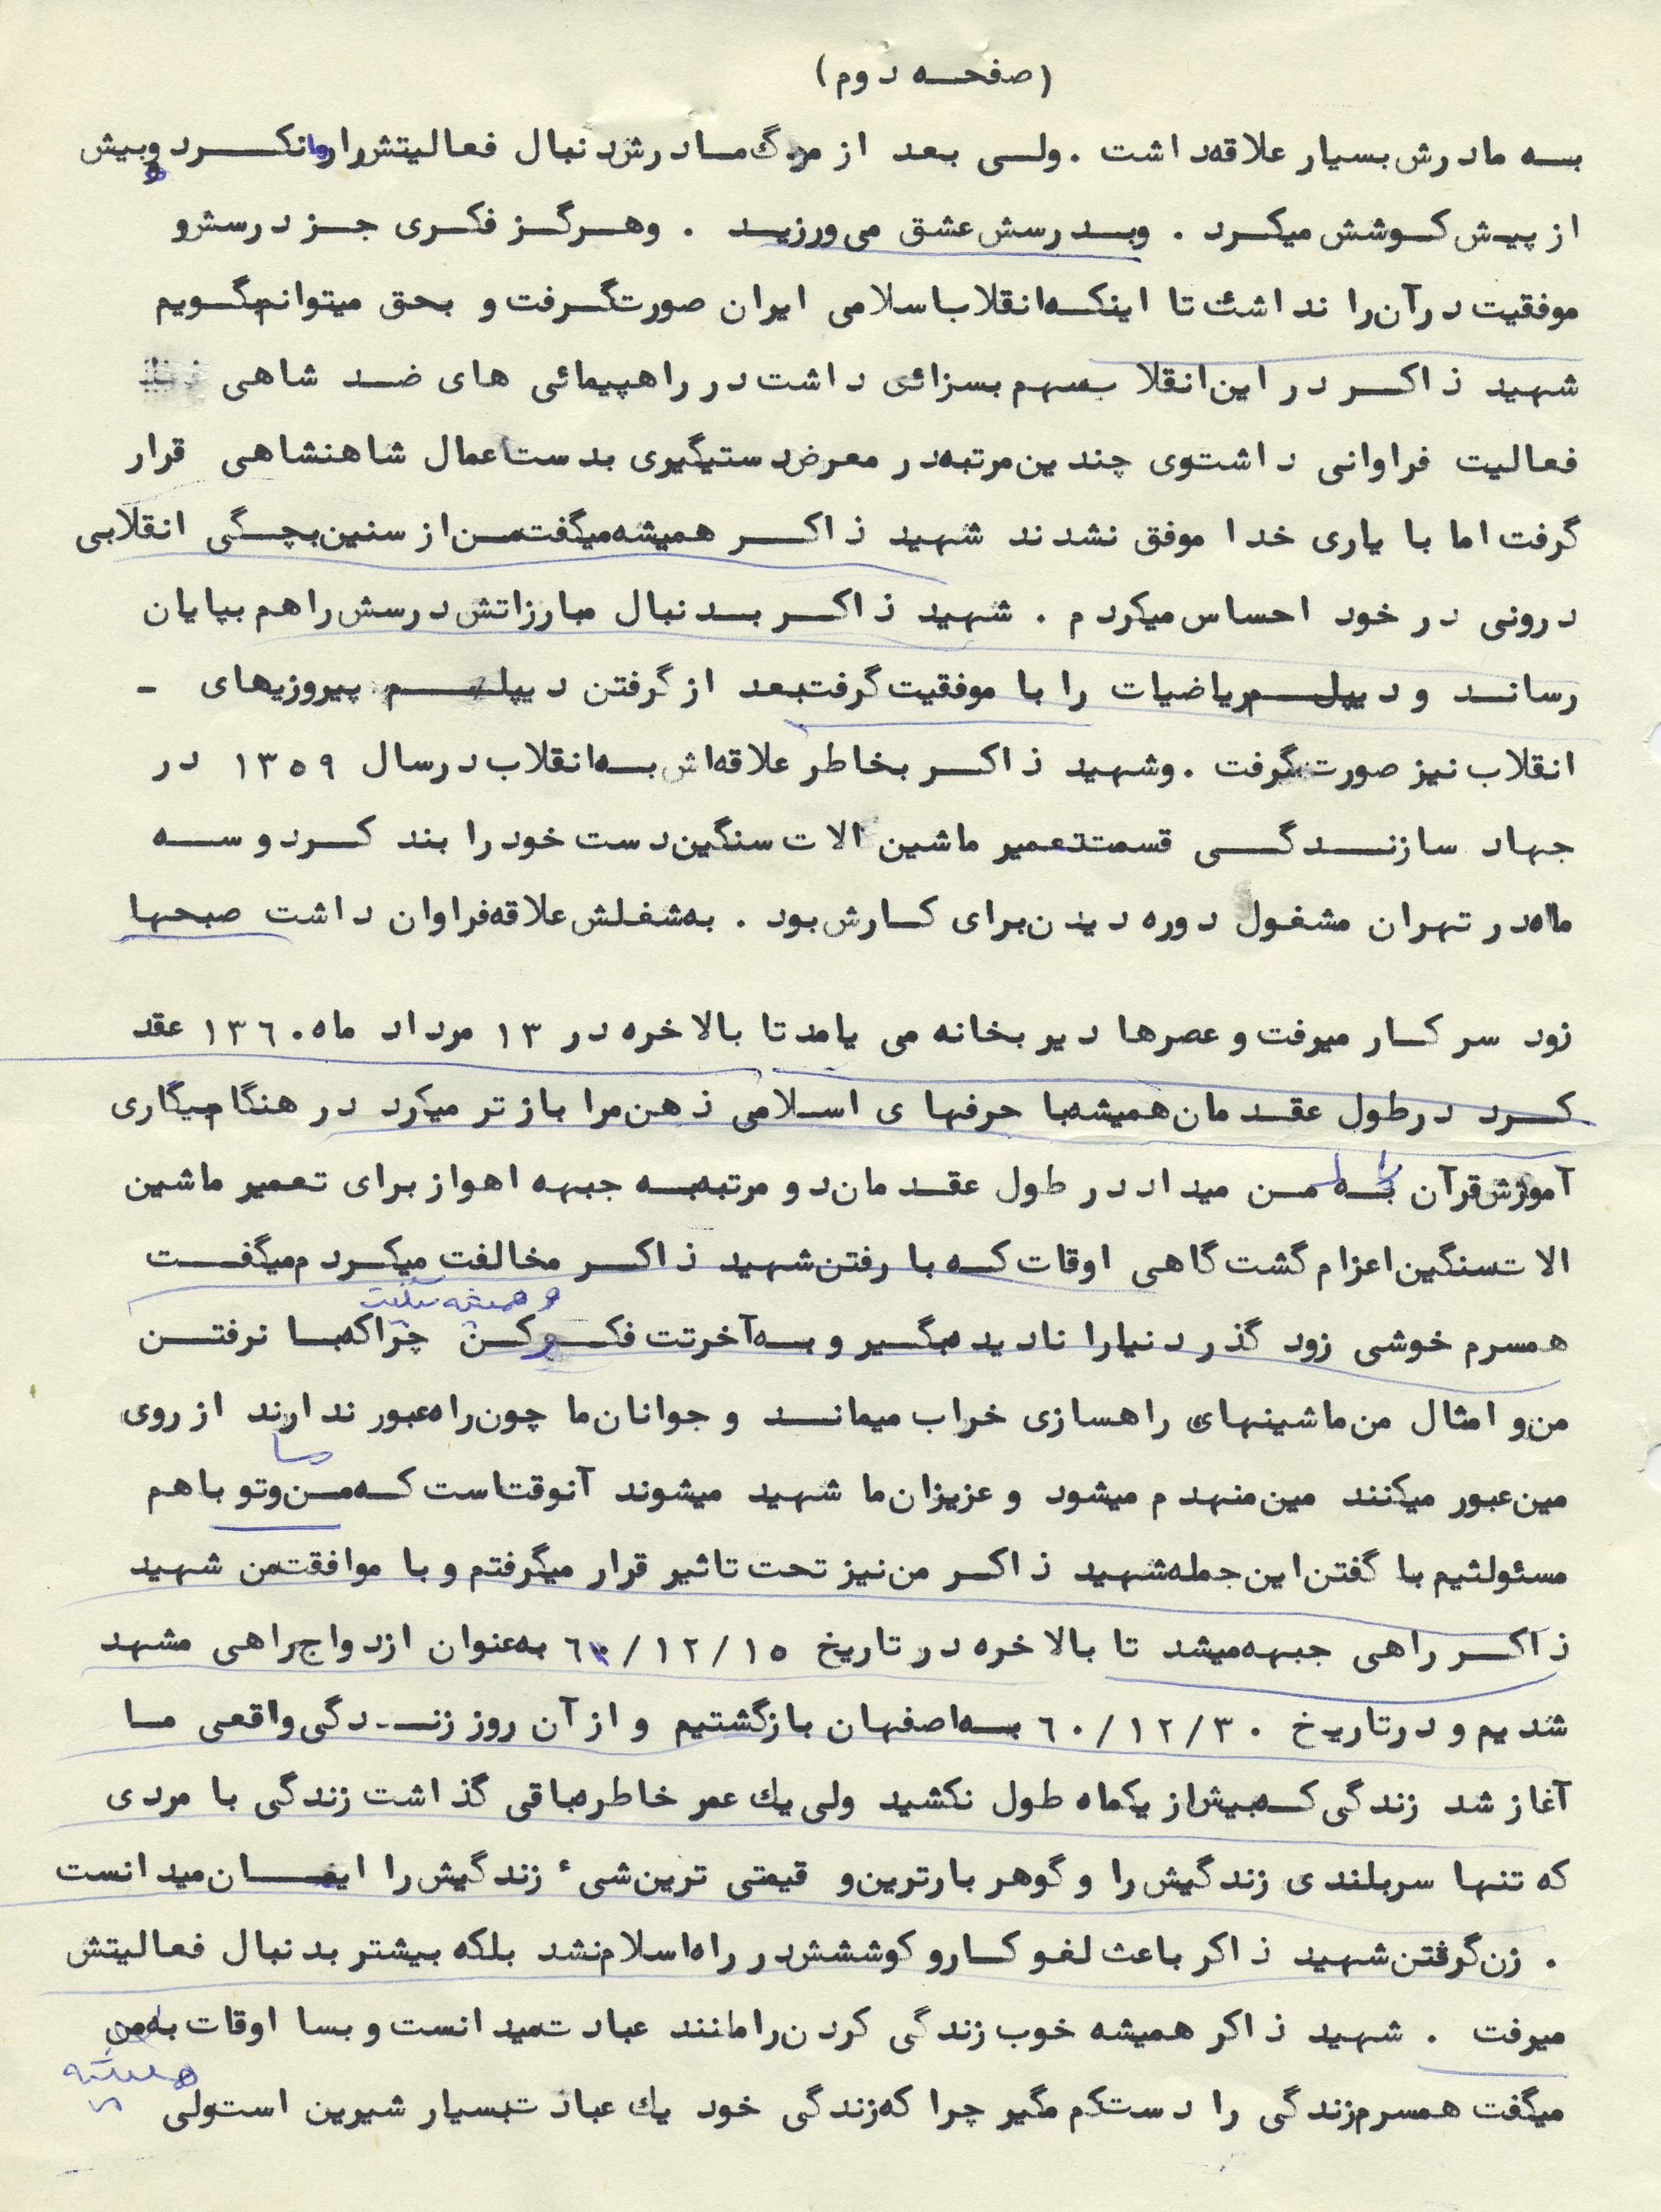 (صفحه دوم)
به مادرش بسیار علاقه داشت . ولی بعد از مرگ مادرش دنبال فعالیتش را رها نکرد و بیش
از پیش کوشش میکرد . و بدرسش عشق می ورزید . و هرگز فکری جز درسش و
موفقیت در آن را نداشت تا اینکه انقلاب اسلامی ایران صورت گرفت و بحق میتوانم بگویم
شهید ذاکر در این انقلاب سهم بسزائی داشت در راهپیمائی های ضد شاهی
فعالیت فراوانی داشت وی چندین مرتبه در معرض دستیگیری بدست عمال شاهنشاهی قرار
گرفت اما با یاری خدا موفق نشدند شهید ذاکر همیشه میگفت من از سنین بچگی انقلابی
درونی در خود احساس میکردم . شهید ذاکر بدنبال مبارزاتش درسش را هم بپایان
رساند و دیپلم ریاضیات را با موفقیت گرفت بعد از گرفتن دیپلم پیروزیهای -
انقلاب نیز صورت گرفت . و شهید ذاکر بخاطر علاقه اش به انقلاب در سال ۱۳۵۹ در
جهاد سازندگی قسمت تعمیر ماشین الات سنگین دست خود را بند کرد و سه
ماه در تهران مشغول دوره دیدن برای کارش بود . به شغلش علاقه فراوان داشت صبحها
زود سر کار میرفت و عصرها دیر بخانه می یامد تا بالاخره در ۱۳ مرداد ماه ۱۳٦۰ عقد
کرد در طول عقدمان همیشه با حرفهای اسلامی ذهن مرا باز تر میکرد در هنگام بیگاری
آموزش قرآن به من میداد در طول عقدمان دو مرتبه به جبهه اهواز برای تعمیر ماشین
الات سنگین اعزام گشت گاهی اوقات که با رفتن شهید ذاکر مخالفت میکردم میگفت
و همیشه میگفت
همسرم خوشی زود گذر دنیا را نادیده بگیر و به آخرتت فکر کن چرا که با نرفتن
من و امثال من ماشینهای راهسازی خراب میماند و جوانان ما چون راه عبور ندارند از روی
مین عبور میکنند مین منهدم میشود و عزیزان ما شهید میشوند آنوقت است که من و تو با هم
مسئولئیم با گفتن این جمله شهید ذاکر من نیز تحت تاثیر قرار میگرفتم و با موافقت من شهید
ذاکر راهی جبهه میشد تا بالاخره در تاریخ ٦۰/۱۲/۱۵ به عنوان ازدواج راهی مشهد
شدیم و در تاریخ ٦۰/۱۲/۳۰ به اصفهان بازگشتیم و از آن روز زندگی واقعی ما
آغاز شد زندگی که بیش از یکماه طول نکشید ولی یك عمر خاطره باقی گذاشت زندگی با مردی
که تنها سربلندی زندگیش را و گوهر بارترین و قیمتی ترین شیء زندگیش را ایمان میدانست
. زن گرفتن شهید ذاکر باعث لغو کار و کوششش در راه اسلام نشد بلکه بیشتر بدنبال فعالیتش
میرفت . شهید ذاکر همیشه خوب زندگی کردن را مانند عبادت میدانست و بسا اوقات به من
همیشه
میگفت همسرم زندگی را دست کم مگیر چرا که زندگی خود یك عبادت بسیار شیرین است ولی